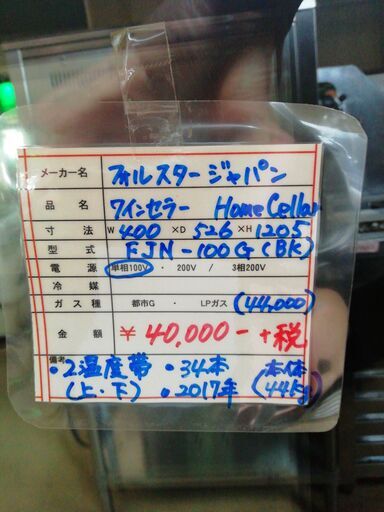 メーカー名 フォルスタージャパン
品名 ワインセラー Home Cellar
寸法 W 400 ×D 526 ×H 1205
型式 FJN-100G(BK)
電源 単相100V ・ 200V / 3相200V
冷媒
ガス種 都市G ・ LPガス (44,000)
金額 ¥40,000- +税
備考
・2温度帯 ・34本 (本体
(上・下) ・2017年 44kg)